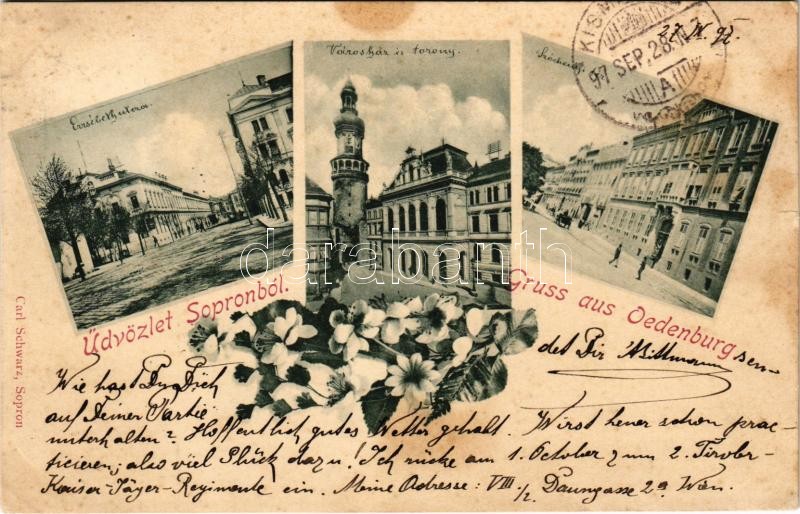 27/IX 97.
97 SEP. 28
Erzsébeth utcza.
Városház és torony.
Üdvözlet Sopronból.
Gruss aus Oedenburg
darabanth
Carl Schwarz, Sopron
sendet Dir Mittmann
Wie hast Du Dich
auf Deiner Partie
unterhalten? Hoffentlich gutes Wetter gehabt. Wirst heuer schon prac-
ticieren; also viel Glück dazu! Ich rücke am 1. October zum 2. Tiroler-
Kaiser-Jäger-Regimente ein. Meine Adresse: VIII/2 Daungasse 2a Wien.